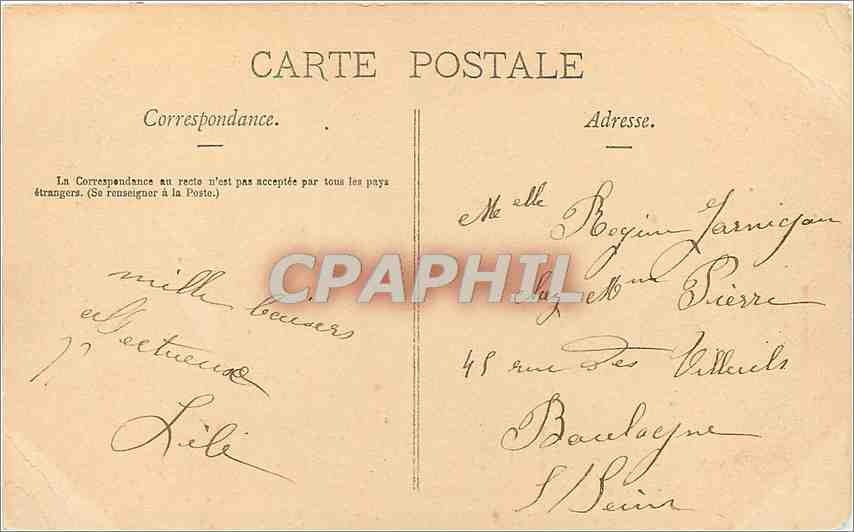 CARTE POSTALE
Correspondance.
La Correspondance au recto n'est pas acceptée par tous les pays
étrangers. (Se renseigner à la Poste.)
mille baisers
affectueux
Lili
Adresse.
Melle Regine Jarnigon
chez Mme Pierre
45 rue des
Boulogne
S/Seine
CPAPHIL